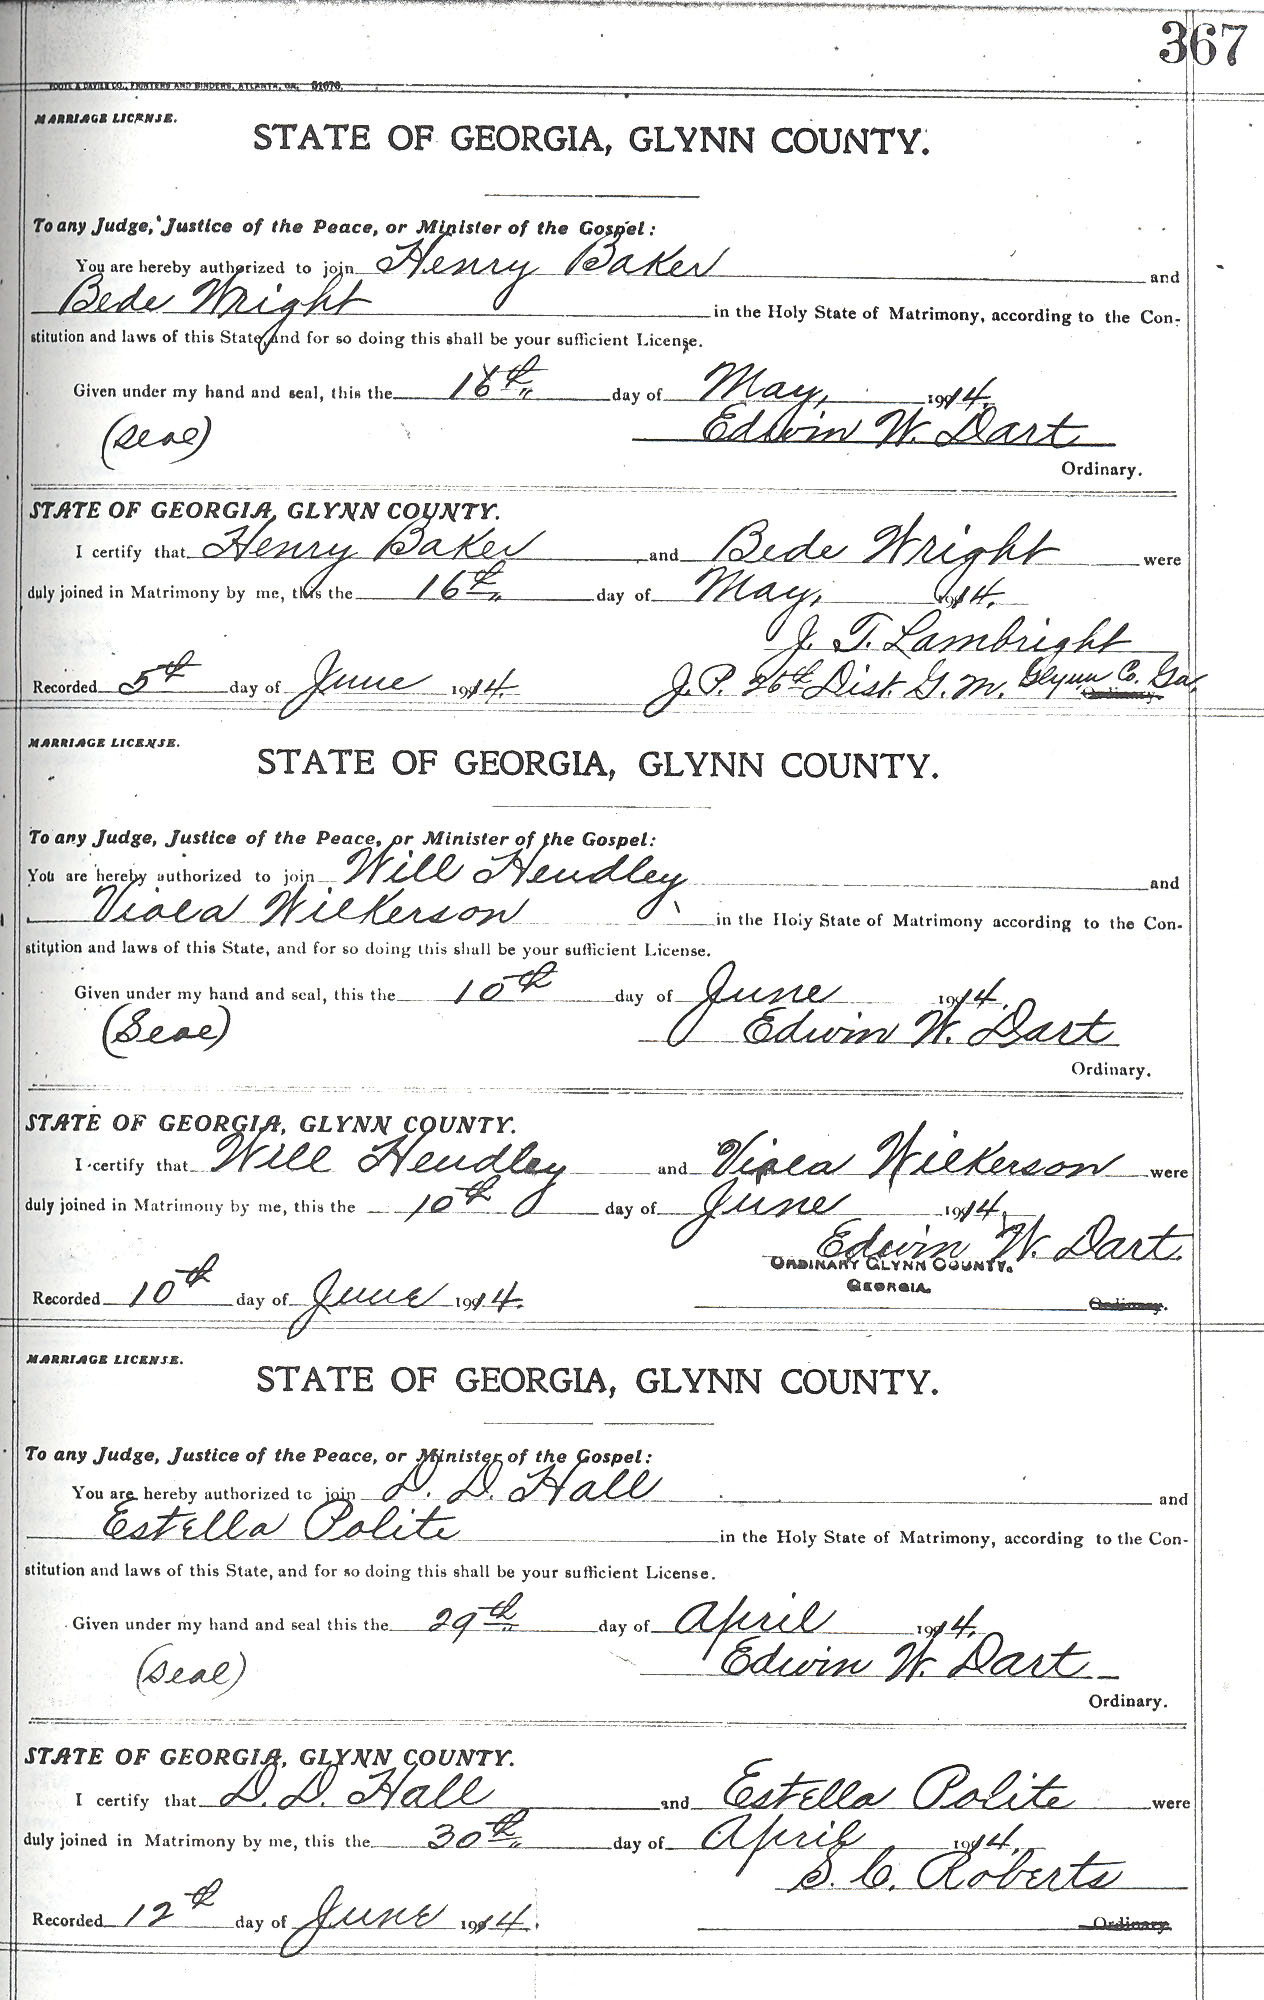 367
FOOTE & DAVIES CO., PRINTERS AND BINDERS, ATLANTA, GA. 61676.
MARRIAGE LICENSE.
STATE OF GEORGIA, GLYNN COUNTY.
To any Judge, Justice of the Peace, or Minister of the Gospel:
You are hereby authorized to join Henry Baker and
Bede Wright in the Holy State of Matrimony, according to the Con-
stitution and laws of this State, and for so doing this shall be your sufficient License.
Given under my hand and seal, this the 16th day of May, 1914.
(Seal) Edwin W. Dart
Ordinary.
STATE OF GEORGIA, GLYNN COUNTY.
I certify that Henry Baker and Bede Wright were
duly joined in Matrimony by me, this the 16th day of May, 1914.
J. T. Lambright
Recorded 5th day of June 1914 J. P. 26th Dist. G. M. Glynn Co. Ga. Ordinary.
MARRIAGE LICENSE.
STATE OF GEORGIA, GLYNN COUNTY.
To any Judge, Justice of the Peace, or Minister of the Gospel:
You are hereby authorized to join Will Hendley and
Viola Wilkerson in the Holy State of Matrimony according to the Con-
stitution and laws of this State, and for so doing this shall be your sufficient License.
Given under my hand and seal, this the 10th day of June 1914.
(Seal) Edwin W. Dart
Ordinary.
STATE OF GEORGIA, GLYNN COUNTY.
I certify that Will Hendley and Viola Wilkerson were
duly joined in Matrimony by me, this the 10th day of June 1914.
Edwin W. Dart.
ORDINARY GLYNN COUNTY.
GEORGIA.
Recorded 10th day of June 1914. Ordinary.
MARRIAGE LICENSE.
STATE OF GEORGIA, GLYNN COUNTY.
To any Judge, Justice of the Peace, or Minister of the Gospel:
You are hereby authorized to join D. D. Hall and
Estella Polite in the Holy State of Matrimony, according to the Con-
stitution and laws of this State, and for so doing this shall be your sufficient License.
Given under my hand and seal this the 29th day of April 1914.
(Seal) Edwin W. Dart
Ordinary.
STATE OF GEORGIA, GLYNN COUNTY.
I certify that D. D. Hall and Estella Polite were
duly joined in Matrimony by me, this the 30th day of April 1914.
S. C. Roberts
Recorded 12th day of June 1914. Ordinary